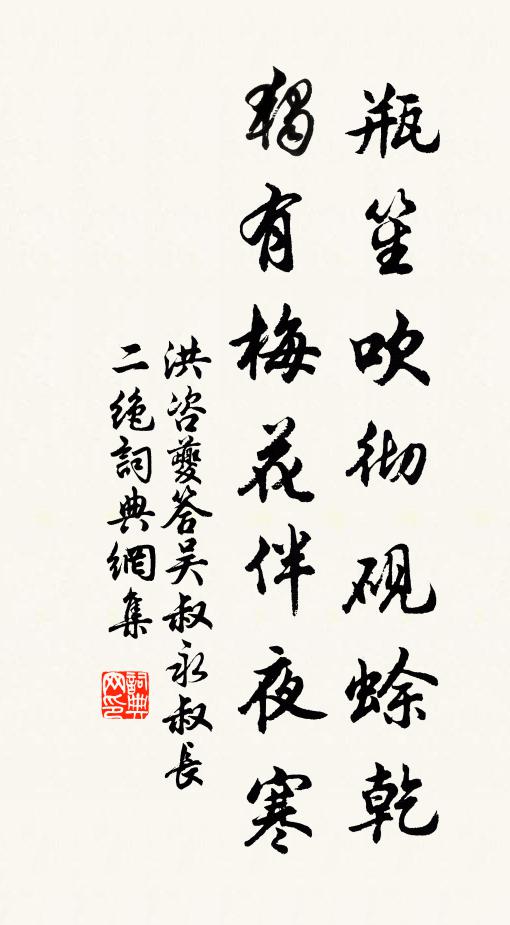 瓶笙吹彻砚蜍乾
独有梅花伴夜寒
洪咨夔答吴叔永叔長
二絶詞典網集
詞典网印